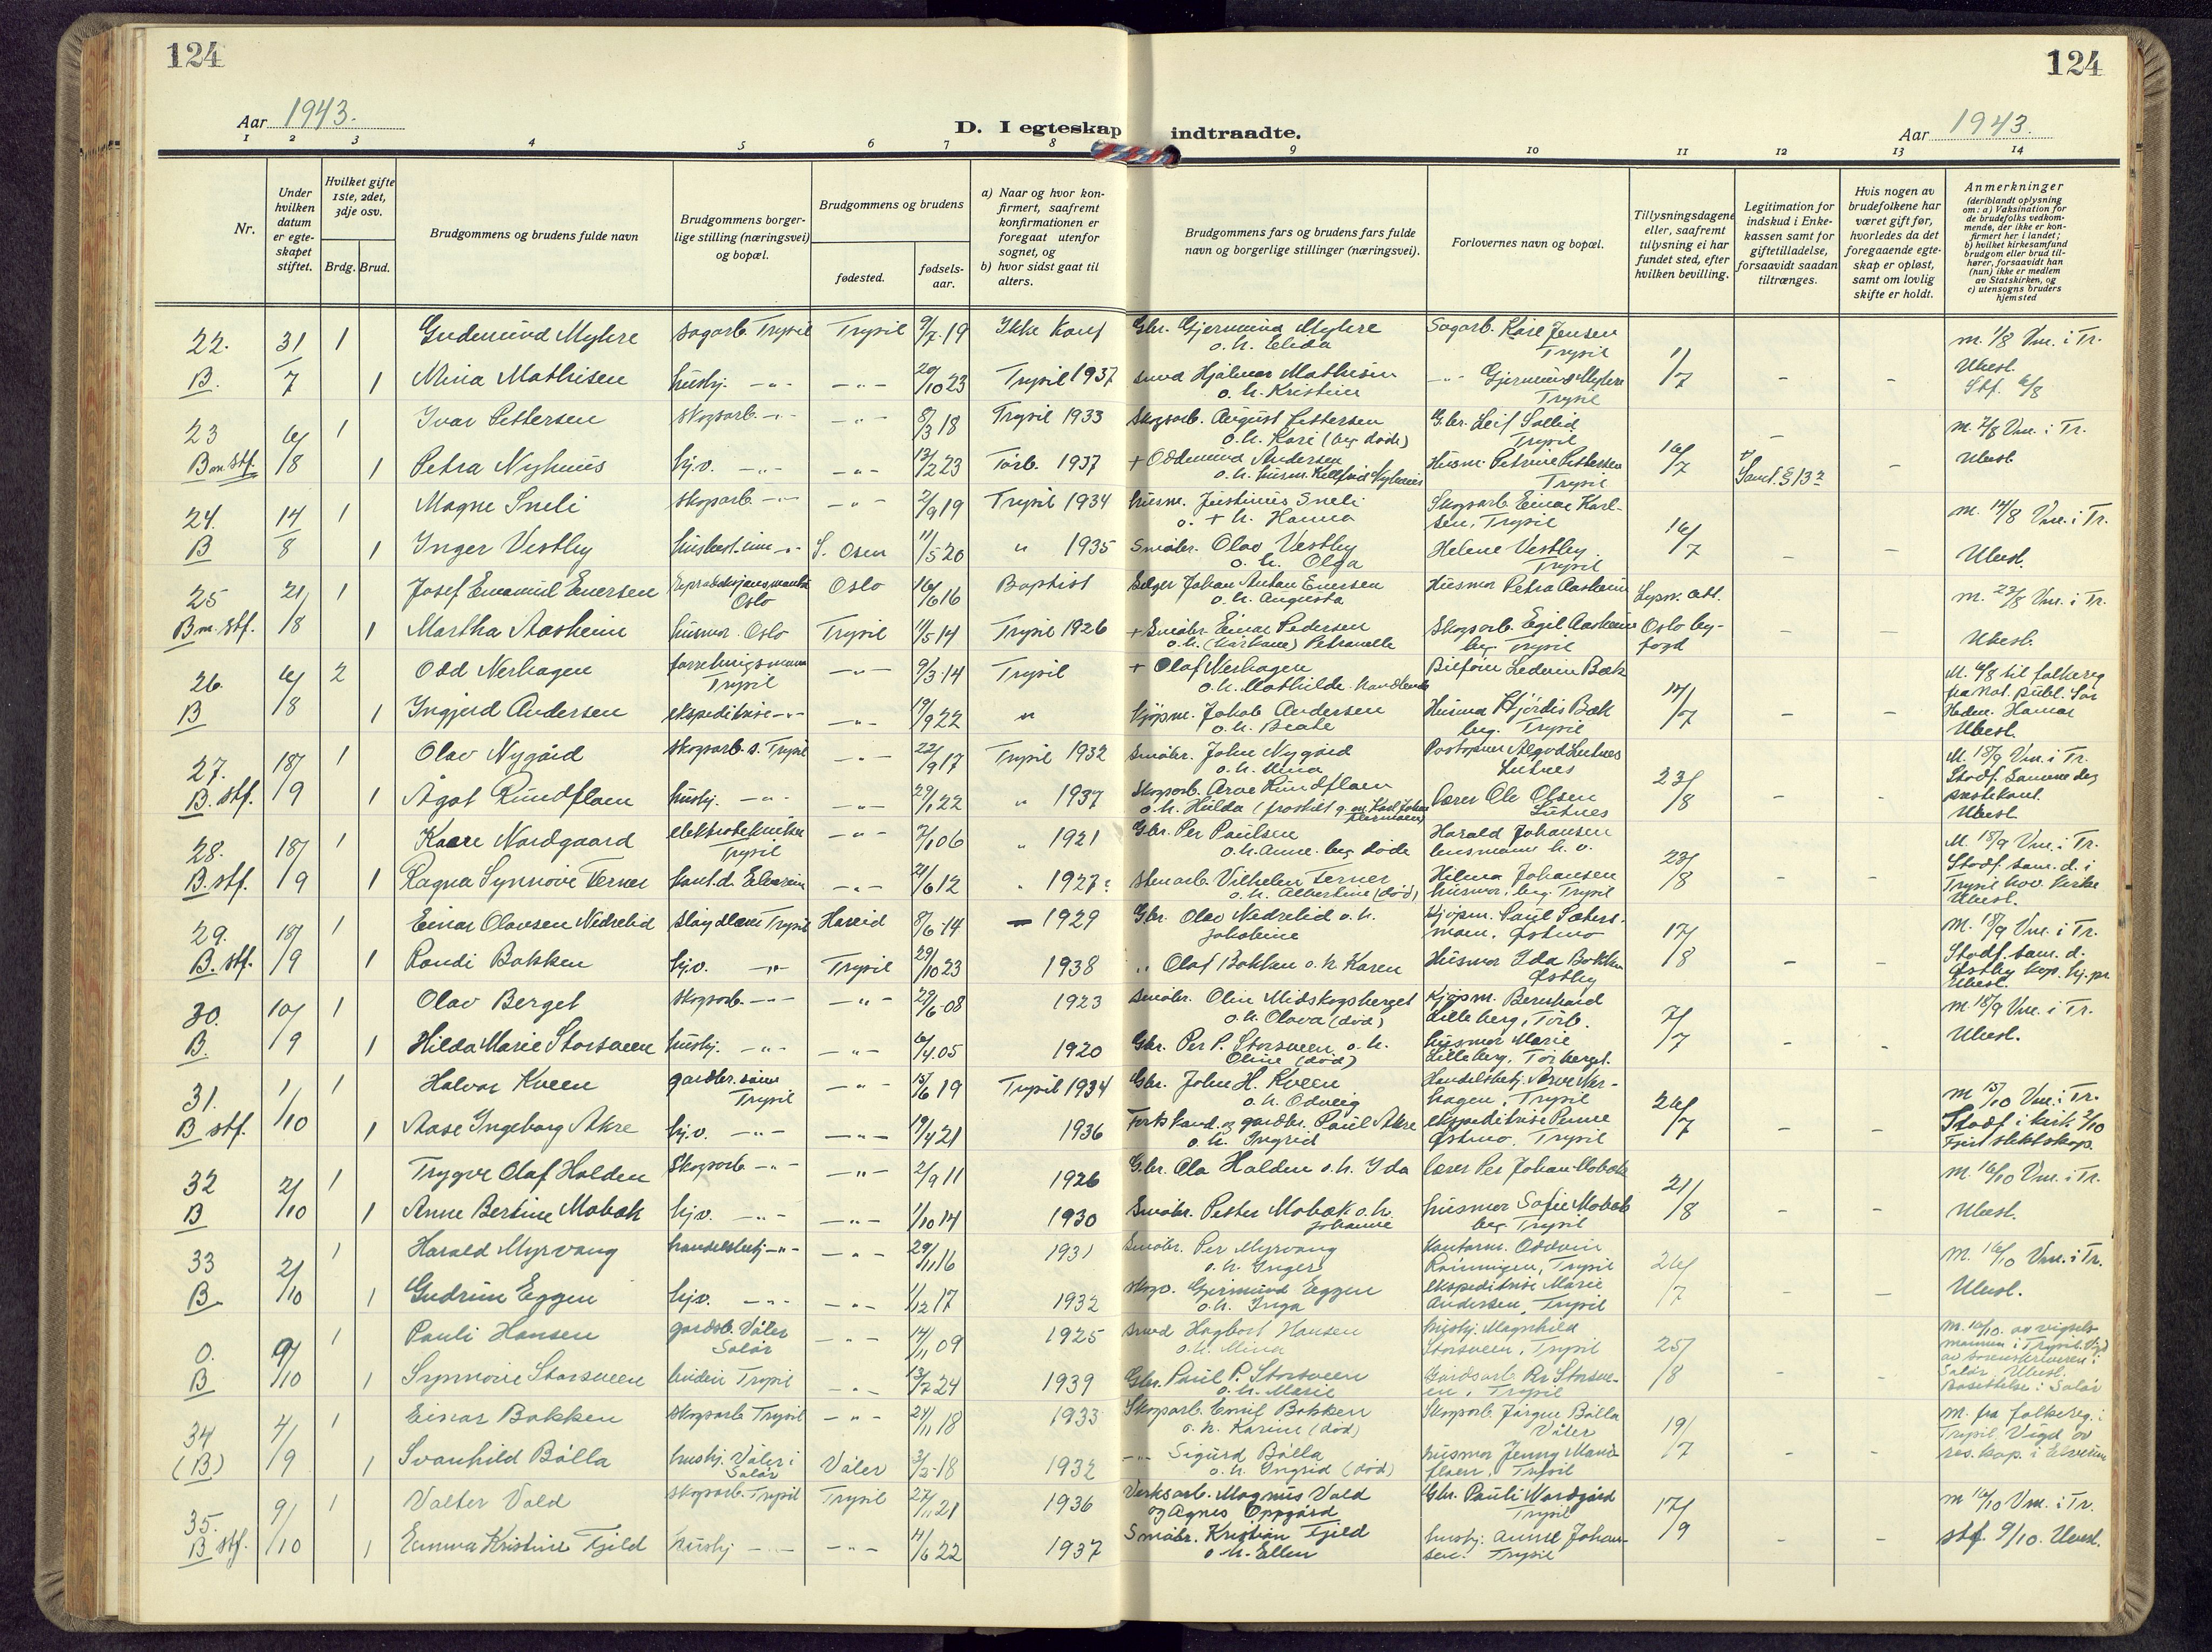 124
124
Aar 1943.
D. I egteskap indtraadte.
Aar 1943.
1 2 3 4 5 6 7 8 9 10 11 12 13 14
Nr.
Under hvilken datum er egte-skapet stiftet.
Hvilket gifte 1ste, 2det, 3dje osv.
Brdg. Brud.
Brudgommens og brudens fulde navn
Brudgommens borger-lige stilling (næringsvei) og bopæl.
Brudgommens og brudens
fødested.
fødsels-aar.
a) Naar og hvor kon-firmert, saafremt konfirmationen er foregaat utenfor sognet, og
b) hvor sidst gaat til alters.
Brudgommens fars og brudens fars fulde navn og borgerlige stillinger (næringsvei).
Forlovernes navn og bopæl.
Tillysningsdagene eller, saafremt tillysning ei har fundet sted, efter hvilken bevilling.
Legitimation for indskud i Enke-kassen samt for giftetilladelse, forsaavidt saadan tiltrænges.
Hvis nogen av brudefolkene har været gift før, hvorledes da det foregaaende egte-skap er opløst, samt om lovlig skifte er holdt.
Anmerkninger (deriblandt oplysning om: a) Vaksination for de brudefolks vedkom-mende, der ikke er kon-firmert her i landet; b) hvilket kirkesamfund brudgom eller brud til-hører, forsaavidt han (hun) ikke er medlem av Statskirken, og c) utensogns bruders hjemsted
22. 31/7 1 Gudmund Myhre sagarb. Trysil Trysil 9/7.19 Ikke konf Gbr. Gjermund Myhre o.h. Elida Sagarb. Kåre Jensen Trysil 1/7 m. 1/8 Vm. i Tr.
B. 1 Mina Mathisen hushj. -"- -"- 20/10 23 Trysil 1937 smed Hjalmar Mathisen o.h. Kristine -"- Gjermund Myhre Trysil - - Ubesl.
23 6/8 1 Ivar Pettersen skogsarb -"- -"- 8/3 18 Trysil 1933 Skogsarb. August Pettersen o.h. Kari (beg døde) Gbr. Leif Sollid Trysil 16/7 - m. 7/8 Vm. i Tr.
B m. stf. 1 Petra Nyhuus hj.v. -"- -"- 12/2 23 Törb. 1937 + Oddmund Andersen Husm. Petrine Pettersen Trysil Saml. § 13 2 - Ubesl.
24. 14/8 1 Magne Sneli skogsarb -"- -"- 2/9 19 Trysil 1934 husm. Justinus Sneli o. + h. Hanna Skogsarb Einar Karl-sen, Trysil 16/7 m. 14/8 Vm. i Tr.
B 1 Inger Vestby -"- S. Osen 11/5 20 " 1935 Småbr. Olav Vestby o.h. Olga Helene Vestby. Trysil - - Ubesl.
25 21/8 1 Josef Emanuel Enersen Oslo Oslo 16/6 16 Baptist Johan Anton Enersen o.h. Augusta Husmor Petra Aasheim Oslo by-fogd m. 23/8 Vm. i Tr.
B m. stf. 1 Martha Aasheim husmor Oslo Trysil 11/5 14 Trysil 1926 + Småbr. Einar Pedersen Petronelle Skogsarb. Egil Aasheim beg. Trysil - - Ubesl.
26. 6/8 2 Odd Nerhagen forretningsmann Trysil -"- 9/3.14 Trysil + Olaf Nerhagen o.h. Mathilde Bæk 14/7 M. 6/8 til folkereg
B 1 Ingjerd Andersen ekspeditrise -"- -"- 19/9 22 " kjøpm. Jakob Andersen o.h. Beate Husmor Hjørdis Bæk beg. Trysil - - Hamar Ubesl.
27. 18/9 1 Olav Nygård skogsarb. s. Trysil -"- 22/9 17 Trysil 1932 Småbr. John Nygård o.h. Mina Lutnes 23/8 M. 18/9 Vm. i Tr.
B. stf. 1 Ågot Rundfloen hushj. -"- -"- 29/1 22 " 1937 Skogsarb. Arve Rundfloen o.h. Hulda lærer Ole Olsen Lutnes - - Ubesl.
28. 18/9 1 Kaare Nordgaard elektrotekniker Trysil -"- 7/1 06 " 1921 Gbr. Per Paulsen o.h. Anne. beg døde Harald Johansen lensmann h.v. 23/8 M. 18/9 Vm. i Tr.
B. stf. 1 Ragna Synnøve Terner Elverum -"- 21/6 12 " 1927 Stenarb. Vilhelm Terner o.h. Albertine (død) Hilma Johansen husmor, beg. Trysil - - Stadf. sam. d. i Trysil hov. kirke Ubesl.
29. 18/9 1 Einar Olavsen Nedrelid sløydlærer Trysil Hareid 8/6.14 1929 Gbr. Olav Nedrelid o.h. Jakobine Kjøpm. Paul Sæters-moen, Østmo 17/8 M. 18/9 Vm. i Tr.
B. stf. 1 Randi Bakken hj.v. -"- Trysil 29/10 23 1938 " Olaf Bakken o.h. Karen Husmor Ida Bakken Østby - - Stadf. sam. d. Østby kap. hj.pr. Ubesl.
30. 10/9 1 Olav Berget skogsarb. -"- -"- 29/6.08 1923 Småbr. Olin Midskogsberget o.h. Olava (død) Kjøpm. Bernhard Lilleberg, Törb. 7/7 m. 18/9 Vm. i Tr.
B. 1 Hilda Marie Storsveen hushj. -"- -"- 6/4.05 1920 Gbr. Per P. Storsveen o.h. Oline (død) husmor Marie Lilleberg, Törberget. - - Ubesl.
31. 1/10 1 Halvor Kveen gardbr.sønn Trysil -"- 15/6 19 Trysil 1934 Gbr. John H. Kveen o.h. Oddveig Handelsbetj. Arve Ner-hagen, Trysil 26/7 m 15/10 Vm. i Tr.
B stf. 1 Aase Ingeborg Akre hj.v. -"- -"- 19/4 21 1936 gardbr. Paul Akre o.h. Ingrid ekspeditrise Østmo, Trysil - - Stadf i kirk. 2/10
32 2/10 1 Trygve Olaf Halden Skogsarb -"- -"- 2/9 11 1926 Gbr. Ola Halden o.h. Ida lærer Per Johan Mobæk 21/8 m. 16/10 Vm. i Tr.
B 1 Anne Bertine Mobæk hj.v. -"- -"- 1/10 14 1930 Småbr. Petter Mobæk o.h. Johanne husmor Sofie Mobæk beg. Trysil - - Ubesl.
33 2/10 1 Harald Myrvang handelsbetj -"- -"- 29/11 16 1931 Småbr. Per Myrvang o.h. Inger Kontorm. Oddvin Rønningen, Trysil 26/7 m. 16/10 Vm. i Tr.
B. 1 Gudrun Eggen hj.v. -"- -"- 1/12 17 1932 skogs. Gjermund Eggen o.h. Inga ekspeditrise Marie Andersen, Trysil - - Ubesl.
0. 9/10 1 Pauli Hansen gardsb. Våler Solør -"- 14/11 09 1925 smed Hagbart Hansen o.h. Mina hushj. Magnhild Storsveen, Trysil 25/8 m. 16/10. av vigsels-mannen i Trysil. Vigd av sorenskriveren i Solør. Ubesl.
B 1 Synnøve Storsveen Trysil -"- 13/7 24 1939 Gbr. Paul P. Storsveen o.h. Marie Gardsarb. Per Storsve-en, Trysil - - Bosettelse: Solør
34 4/9 1 Einar Bakken skogsarb Trysil -"- 24/11 18 1933 Skogsarb. Emil Bakken o.h. Karine (død) Skogsarb Jørgen Bålla Våler 19/7 m. fra folkereg. i Trysil. Vigd av
(B) 1 Svanhild Bålla hushj. Våler i Solør Våler 3/2.18 1932 -"- Sigurd Bålla o.h. Ingrid (død) husmor Jenny Trysil - - res. kap. i Elverum
35. 9/10 1 Valter Vold skogsarb. Trysil Trysil 27/11 21 1936 Verksarb. Magnus Vold og Agnes Oppgård Gbr. Pauli Nordgård Trysil 17/9 m 16/10 Vm. i Tr.
B stf. 1 Emma Kristine Fjeld hushj -"- -"- 11/6 22 1937 Småbr. Kristian Fjeld o.h. Ellen hushj. Anne Johan-sen. Trysil - - stf. 9/10. Ubesl.